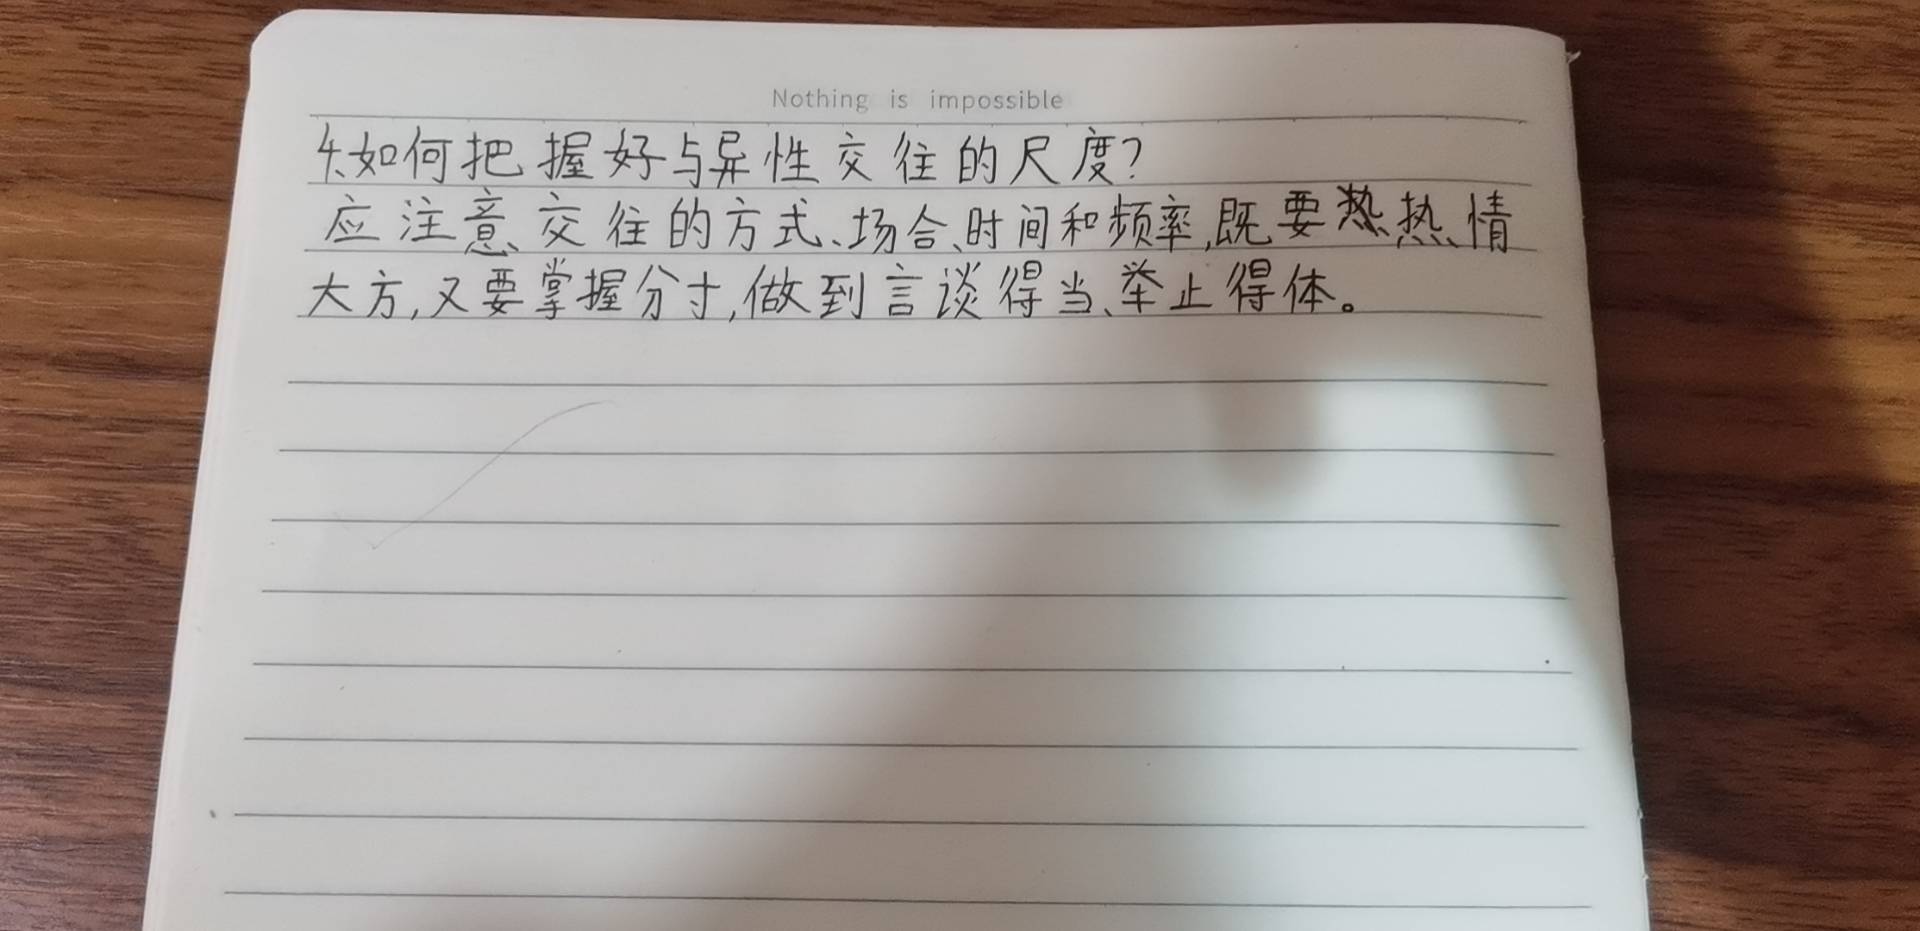 Nothing is impossible
4.如何把握好与异性交往的尺度?
应注意交往的方式、场合、时间和频率,既要热情
大方,又要掌握分寸,做到言谈得当、举止得体。